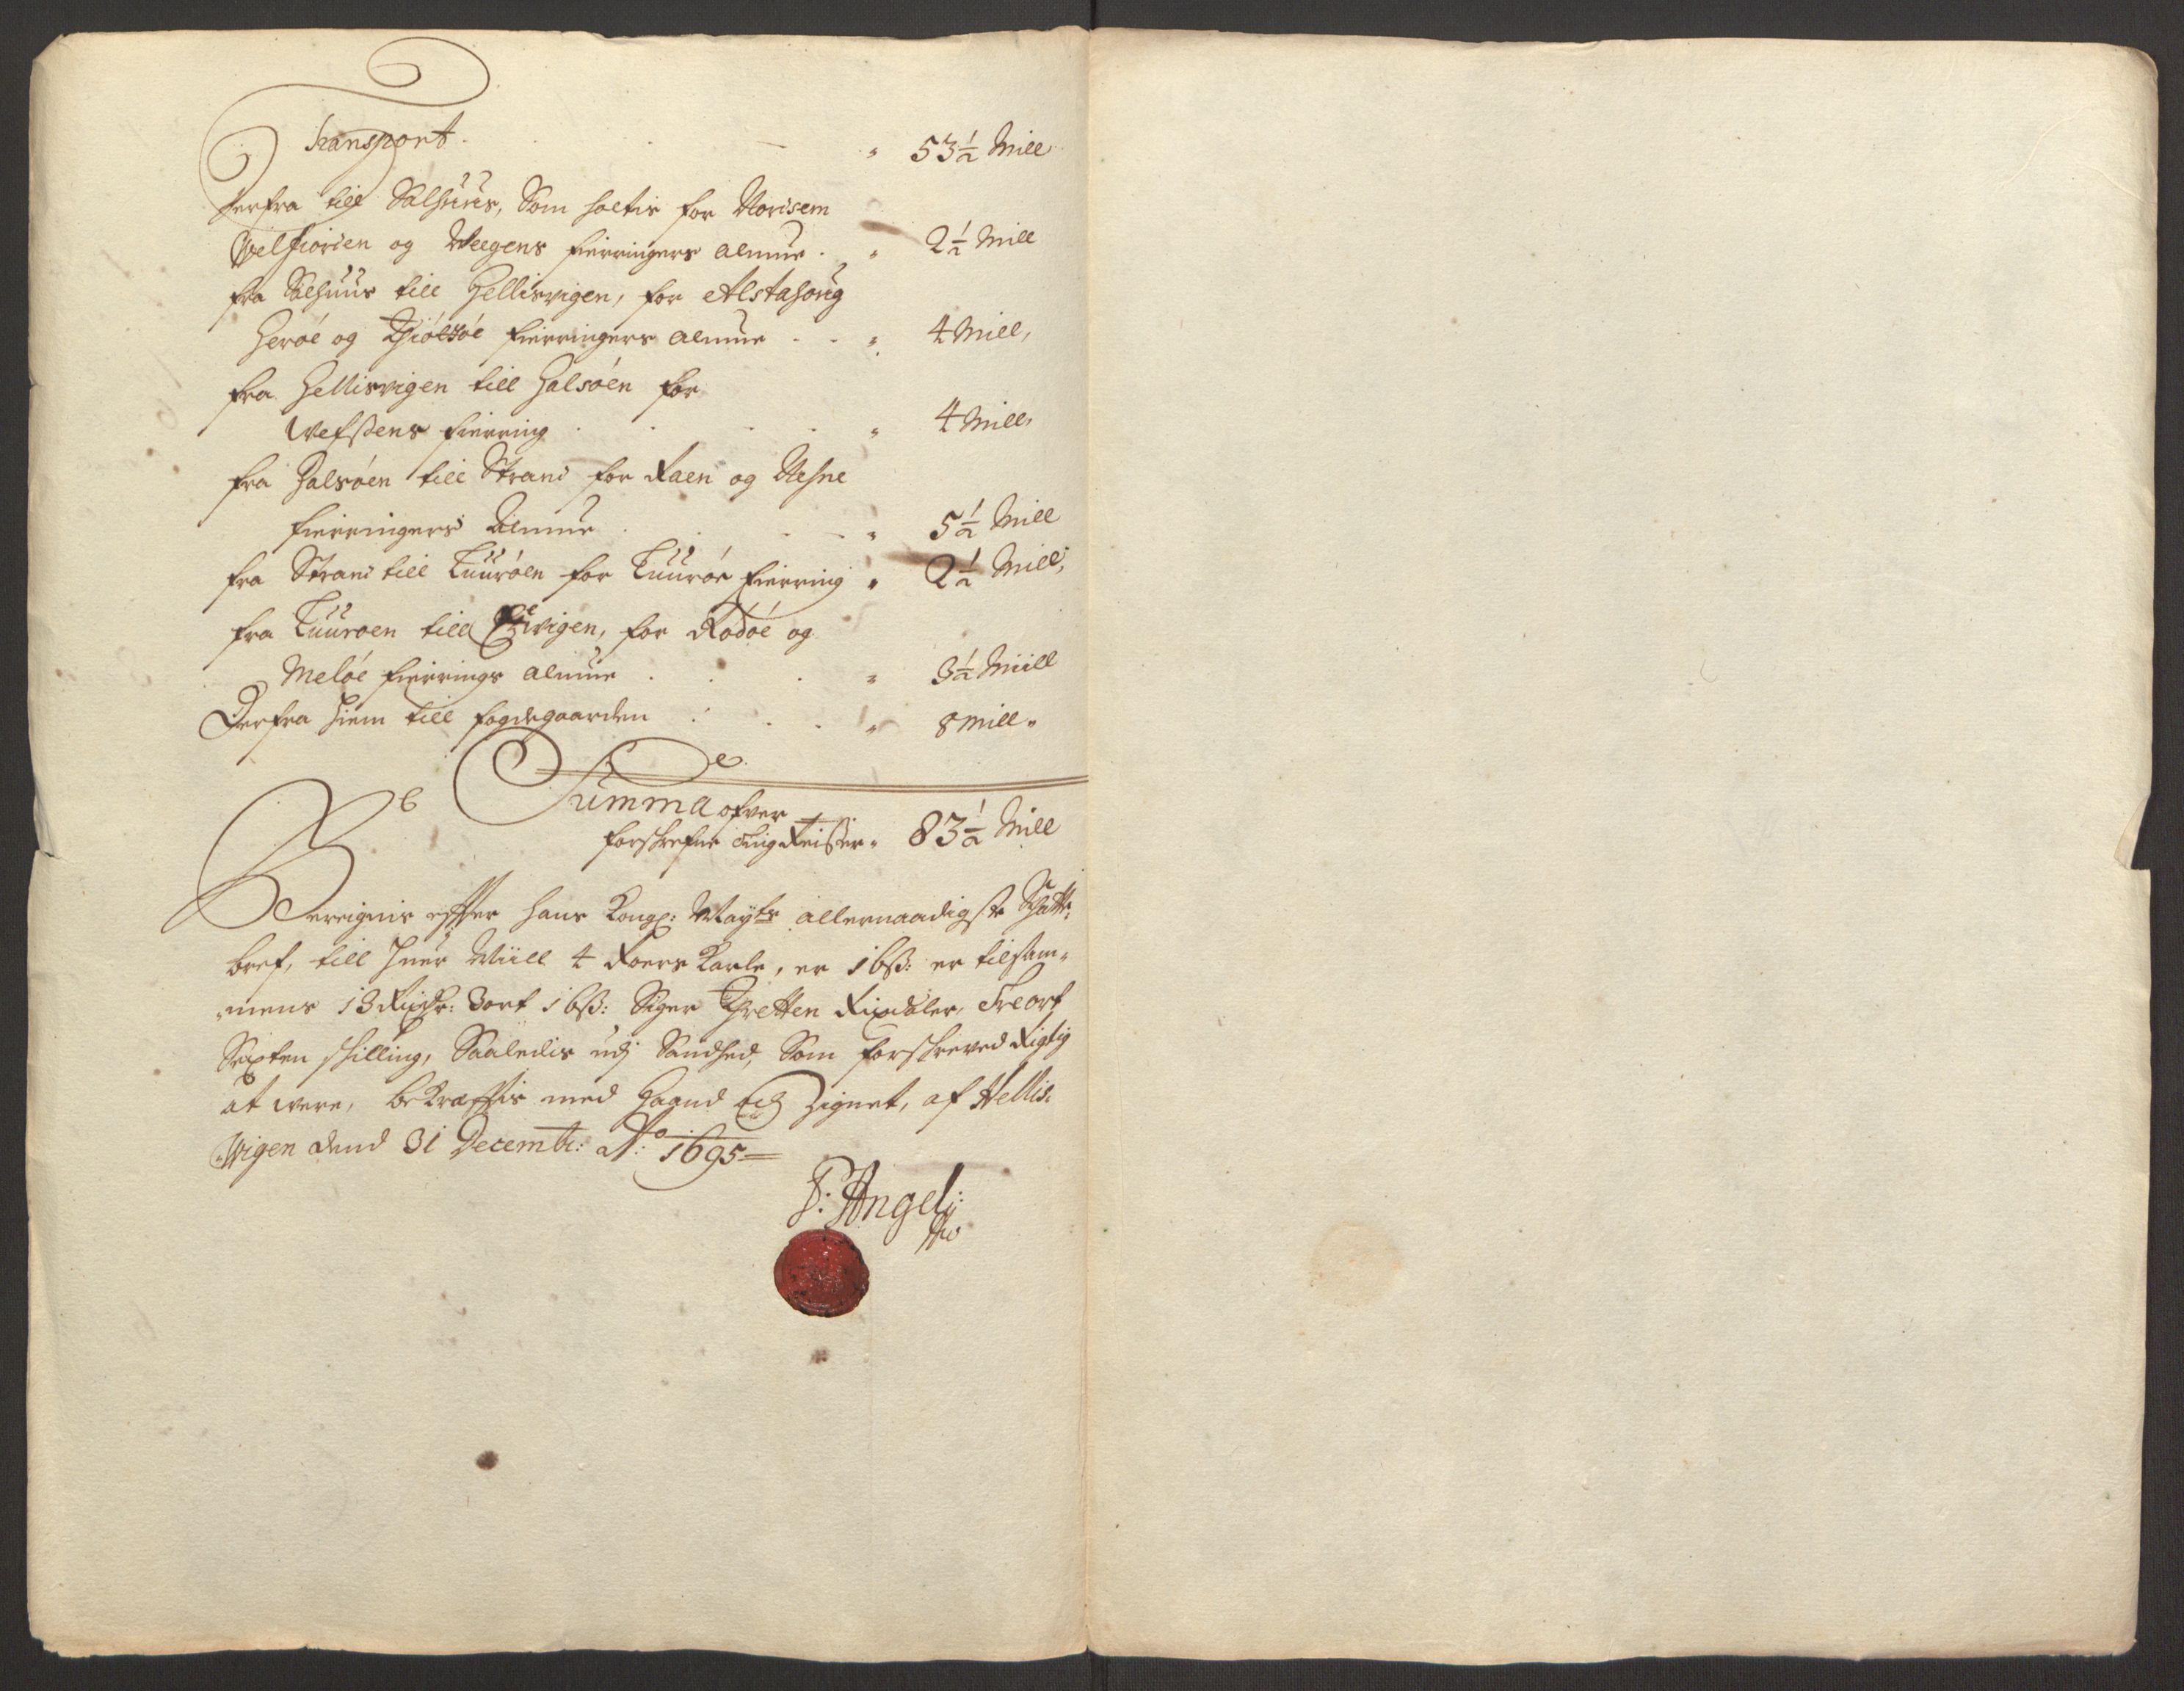 Transport. " 53½ Mill
Herfra till Salhuus, Som holtis for Norisem
Welfiorden og Weegens fierringers almue . " 2½ Mill
fra Salhuus till Hellisvigen, for Alstahoug
Herøe og Thiøtøe fierringers almue . . " 4 Mill,
fra Hellisvigen till Halsøen for
Wefsens fierring . . . . " 4 Mill,
fra Halsøen till Strand for Raen og Nesne
fierringers Almue . . . " 5½ Mill
fra Strand till Luurøen for Luurøe fierring " 2½ Mill,
fra Luurøen till vigen, for Rødøe og
Meløe fierrings almue . . . " 3½ Miill
Derfra hiem till fogdegaarden . . . " 8 mill "
Summa ofver
forskrefne ting Reisser " 83½ Mill
Bereignis efter hans Kongl: Mayts allernaadigste Skatte
bref, till huer Miill 4 Roers Karle, er 16 ß: er tilsam-
mens 13 Rixdr: 3 ort 16 ß: Siger Thretten Rixdaler, Tre ort
Sexten skilling, Saaledis udj Sandhed, Som forskreved Rigtig
at were, bekræfftis med Haand och Zignet, af Hellis-
wigen dend 31 Decembr: Ao: 1695
P: Angell: